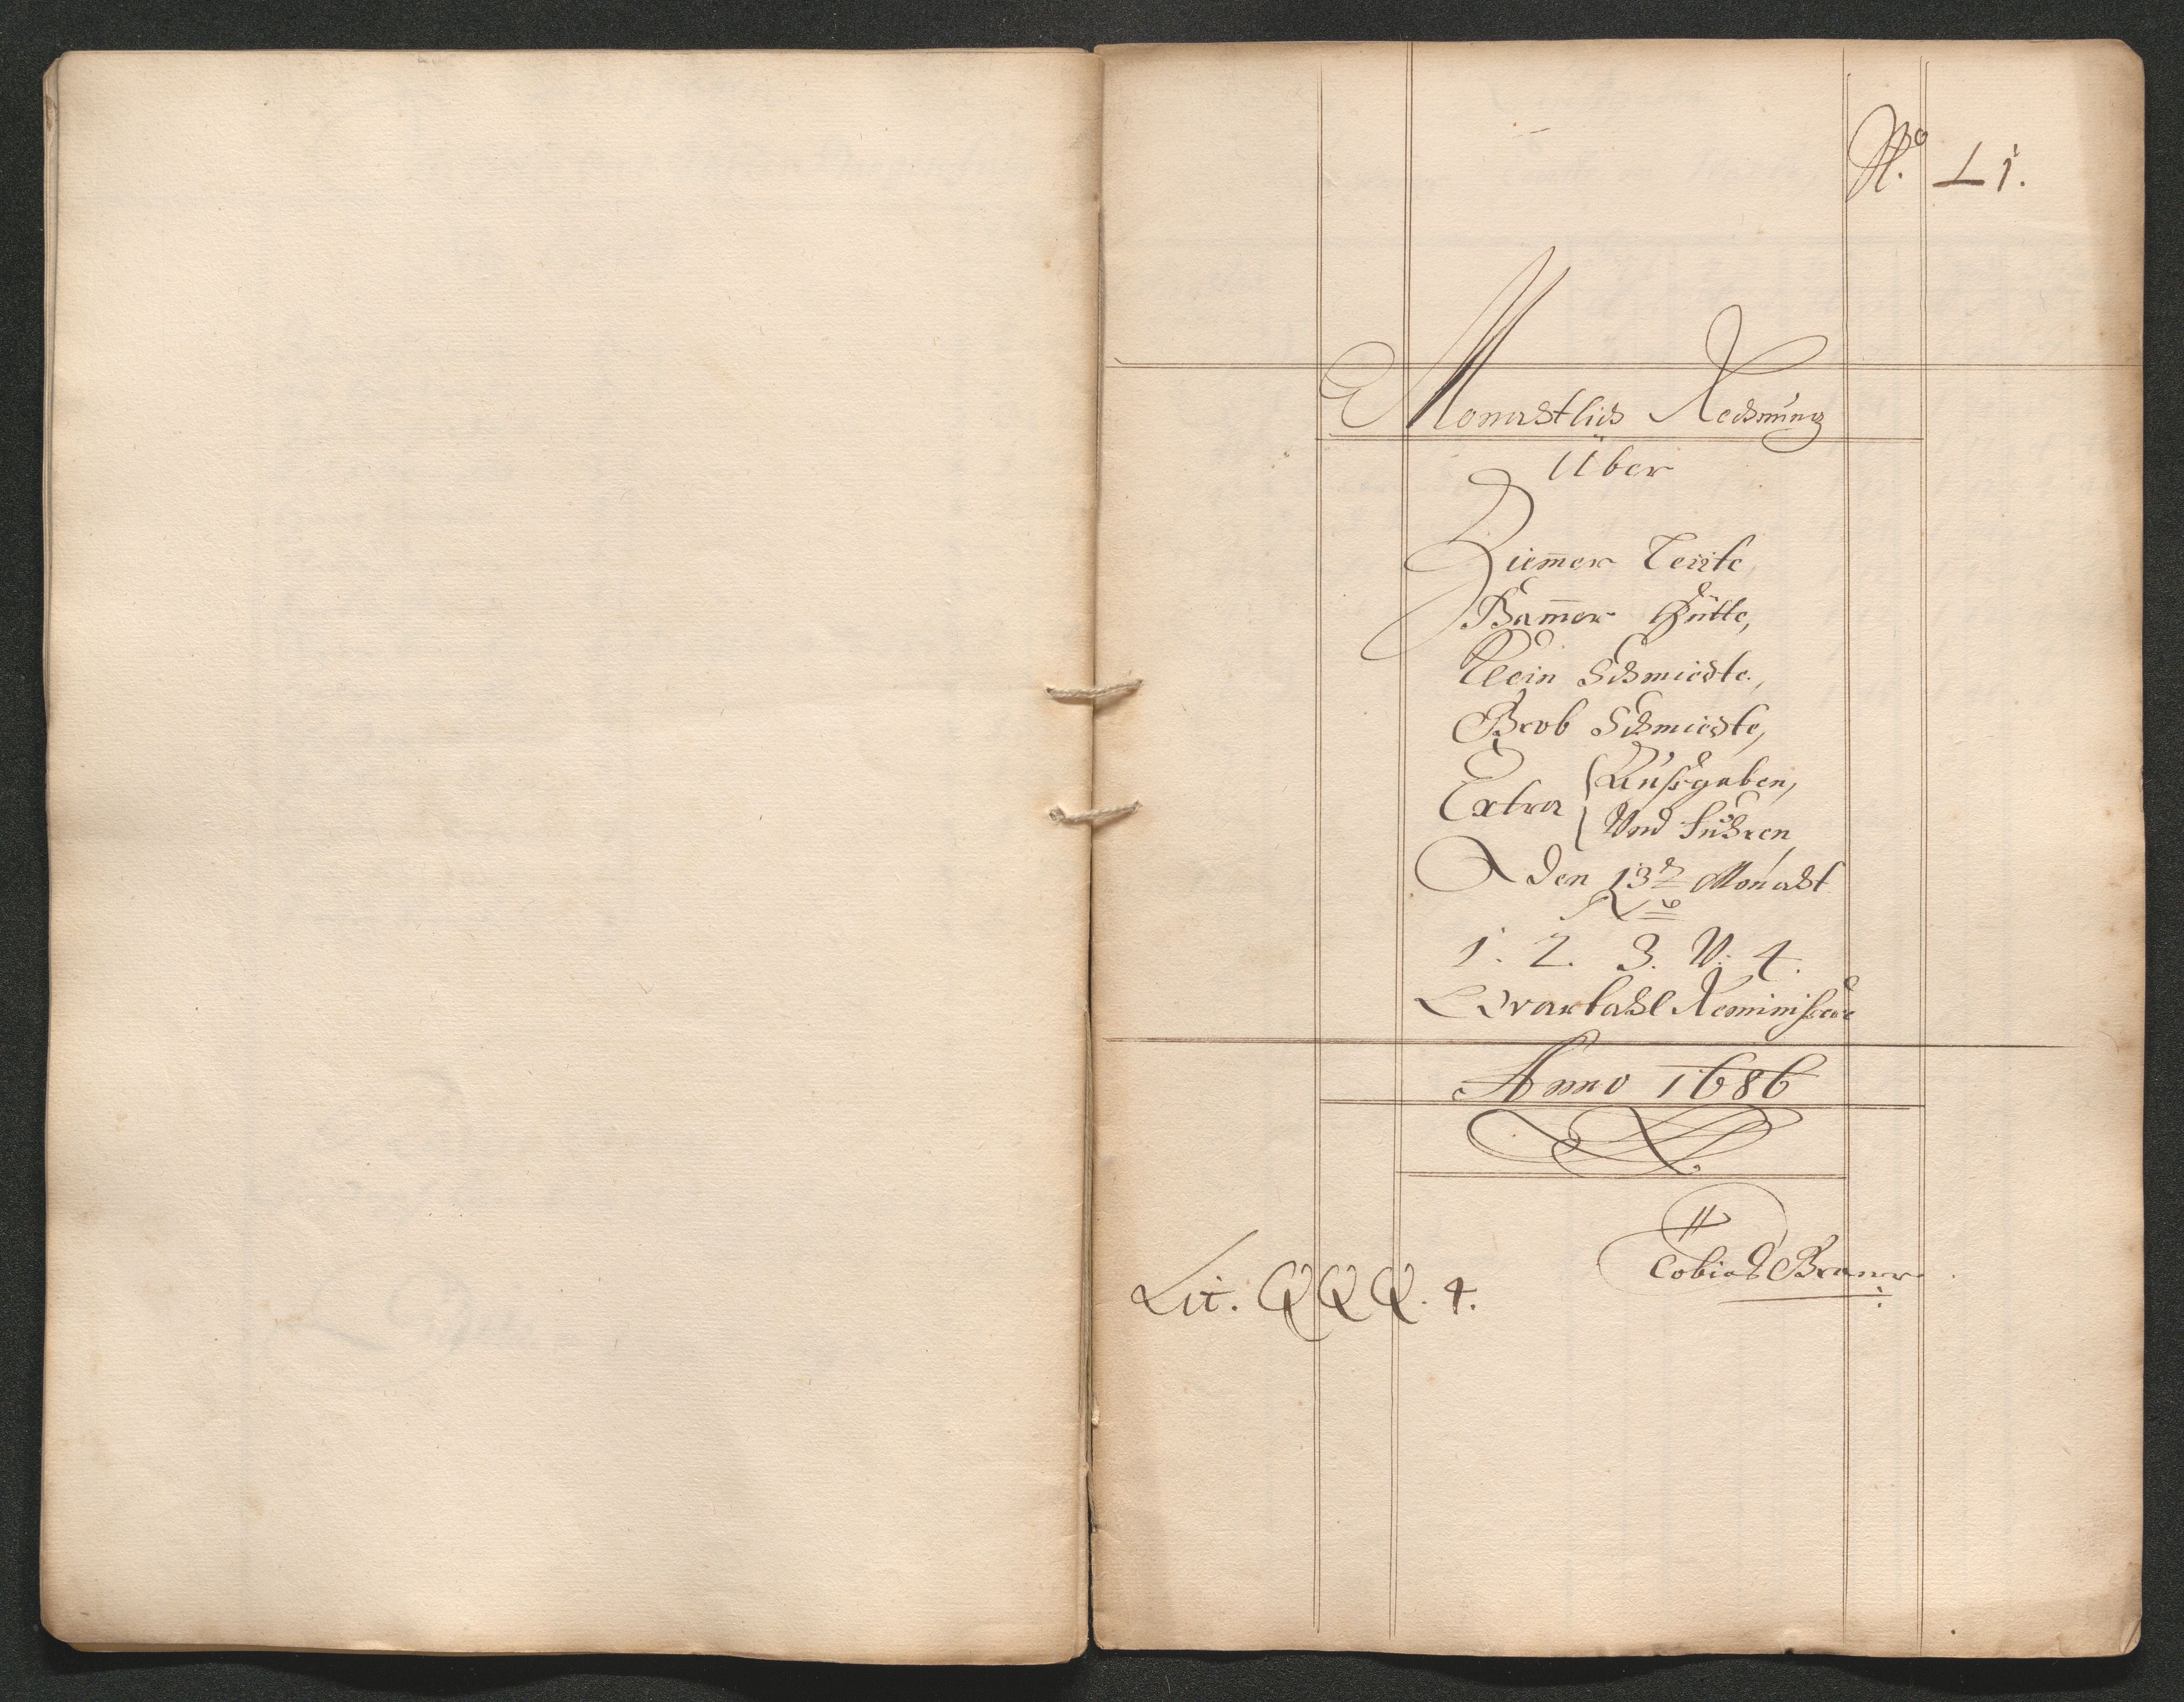 No. L1.
Monahtlich Rechnung
Über
Ziem̄er Leüte,
Bam̄er Hütte,
Klein Schmiedte,
Grob Schmiedte,
Extra { Außgaben,
Und Fuhren
Den 13ᵗ Monaht
No
1. 2. 3. V. 4.
Qvartahl Reminiscere
Anno 1686
Lit. QQQ. 4.
Tobias Braner